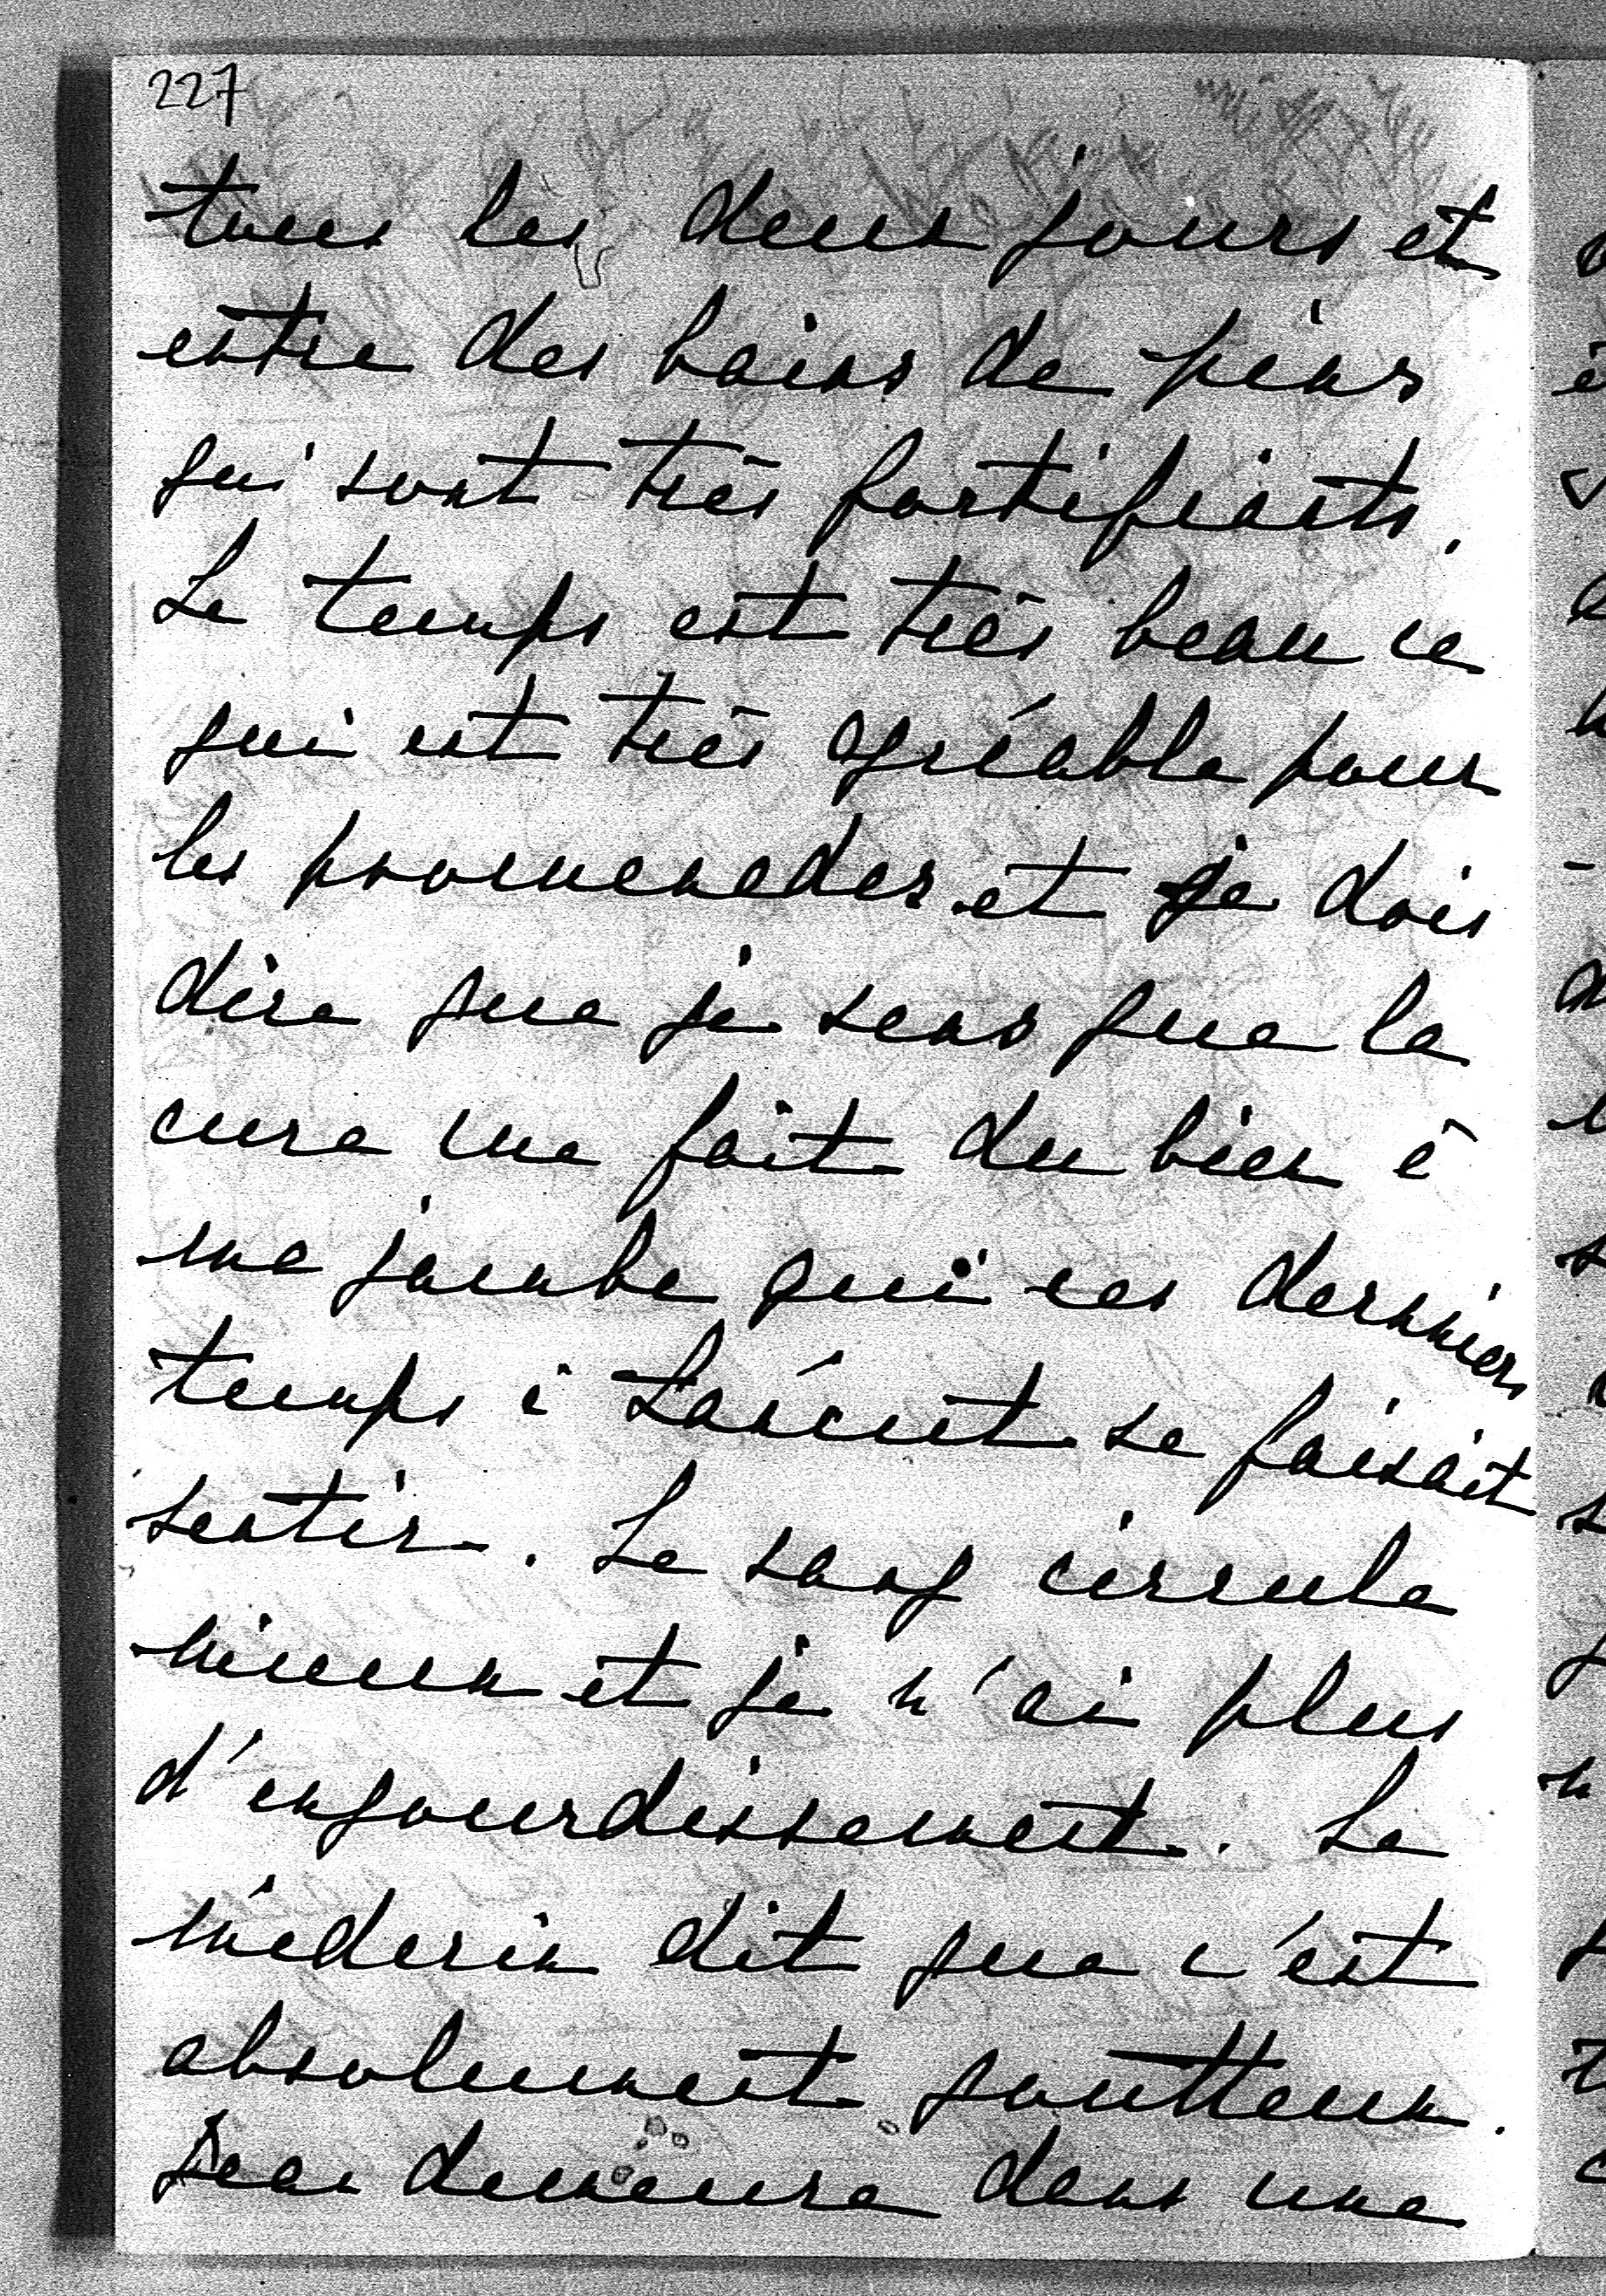 227
tous les deux jours et
entre des bains de pins
qui sont très fortifiants.
Le temps est très beau ce
qui est très agréable pour
les promenades et je dois
dire que je sens que la
cure me fait du bien à
ma jambe qui ces derniers
temps à se faisait
sentir. Le sang circule
mieux et je n'ai plus
d'engourdissement. Le
médecin dit que c'est
absolument goutteux.
Jean demeure dans une